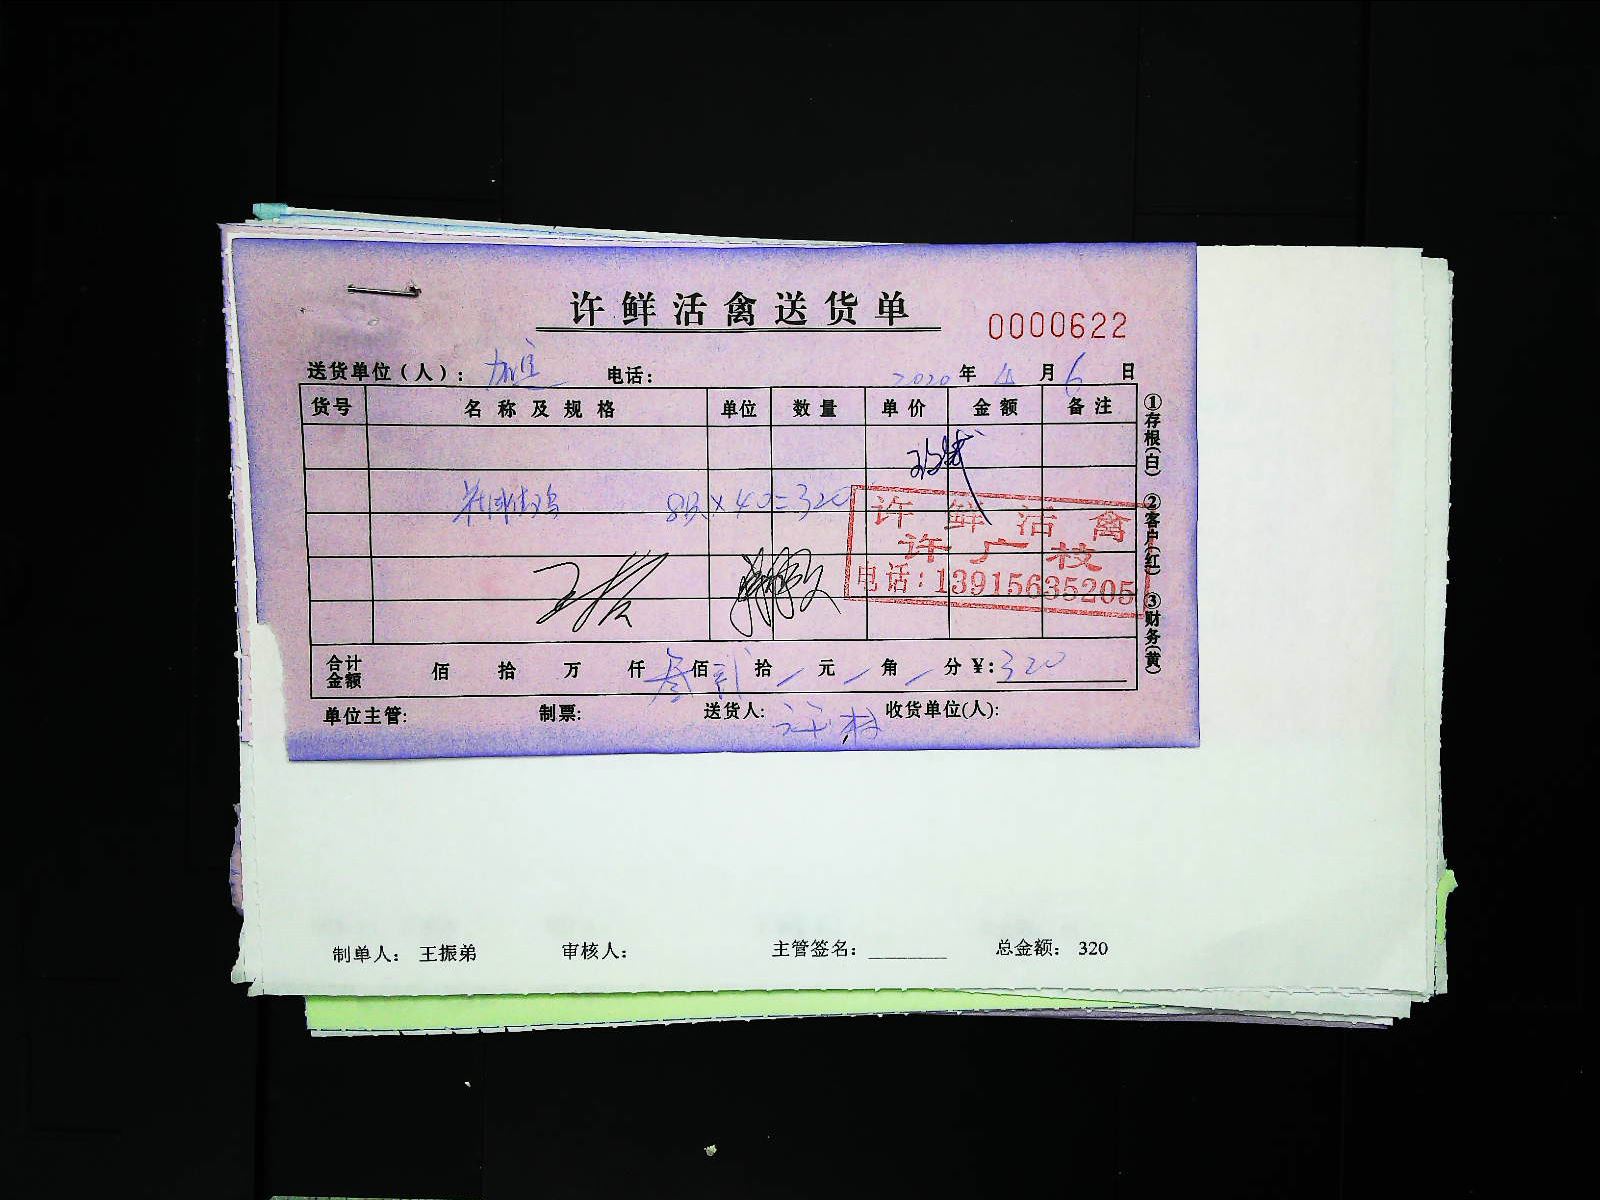 许鲜活禽送货单
0000622
送货单位（人）： 电话： 2020 年 4 月 6 日
货号 名称及规格 单位 数量 单价 金额 备注
8只×40=320
许鲜活禽
许广枝
电话：13915635205
合计金额 佰 拾 万 仟 叁佰 贰拾 / 元 / 角 / 分 ¥：320
单位主管： 制票： 送货人： 收货单位(人)：
①存根(白) ②客户(红) ③财务(黄)
制单人： 王振弟 审核人： 主管签名：________ 总金额： 320